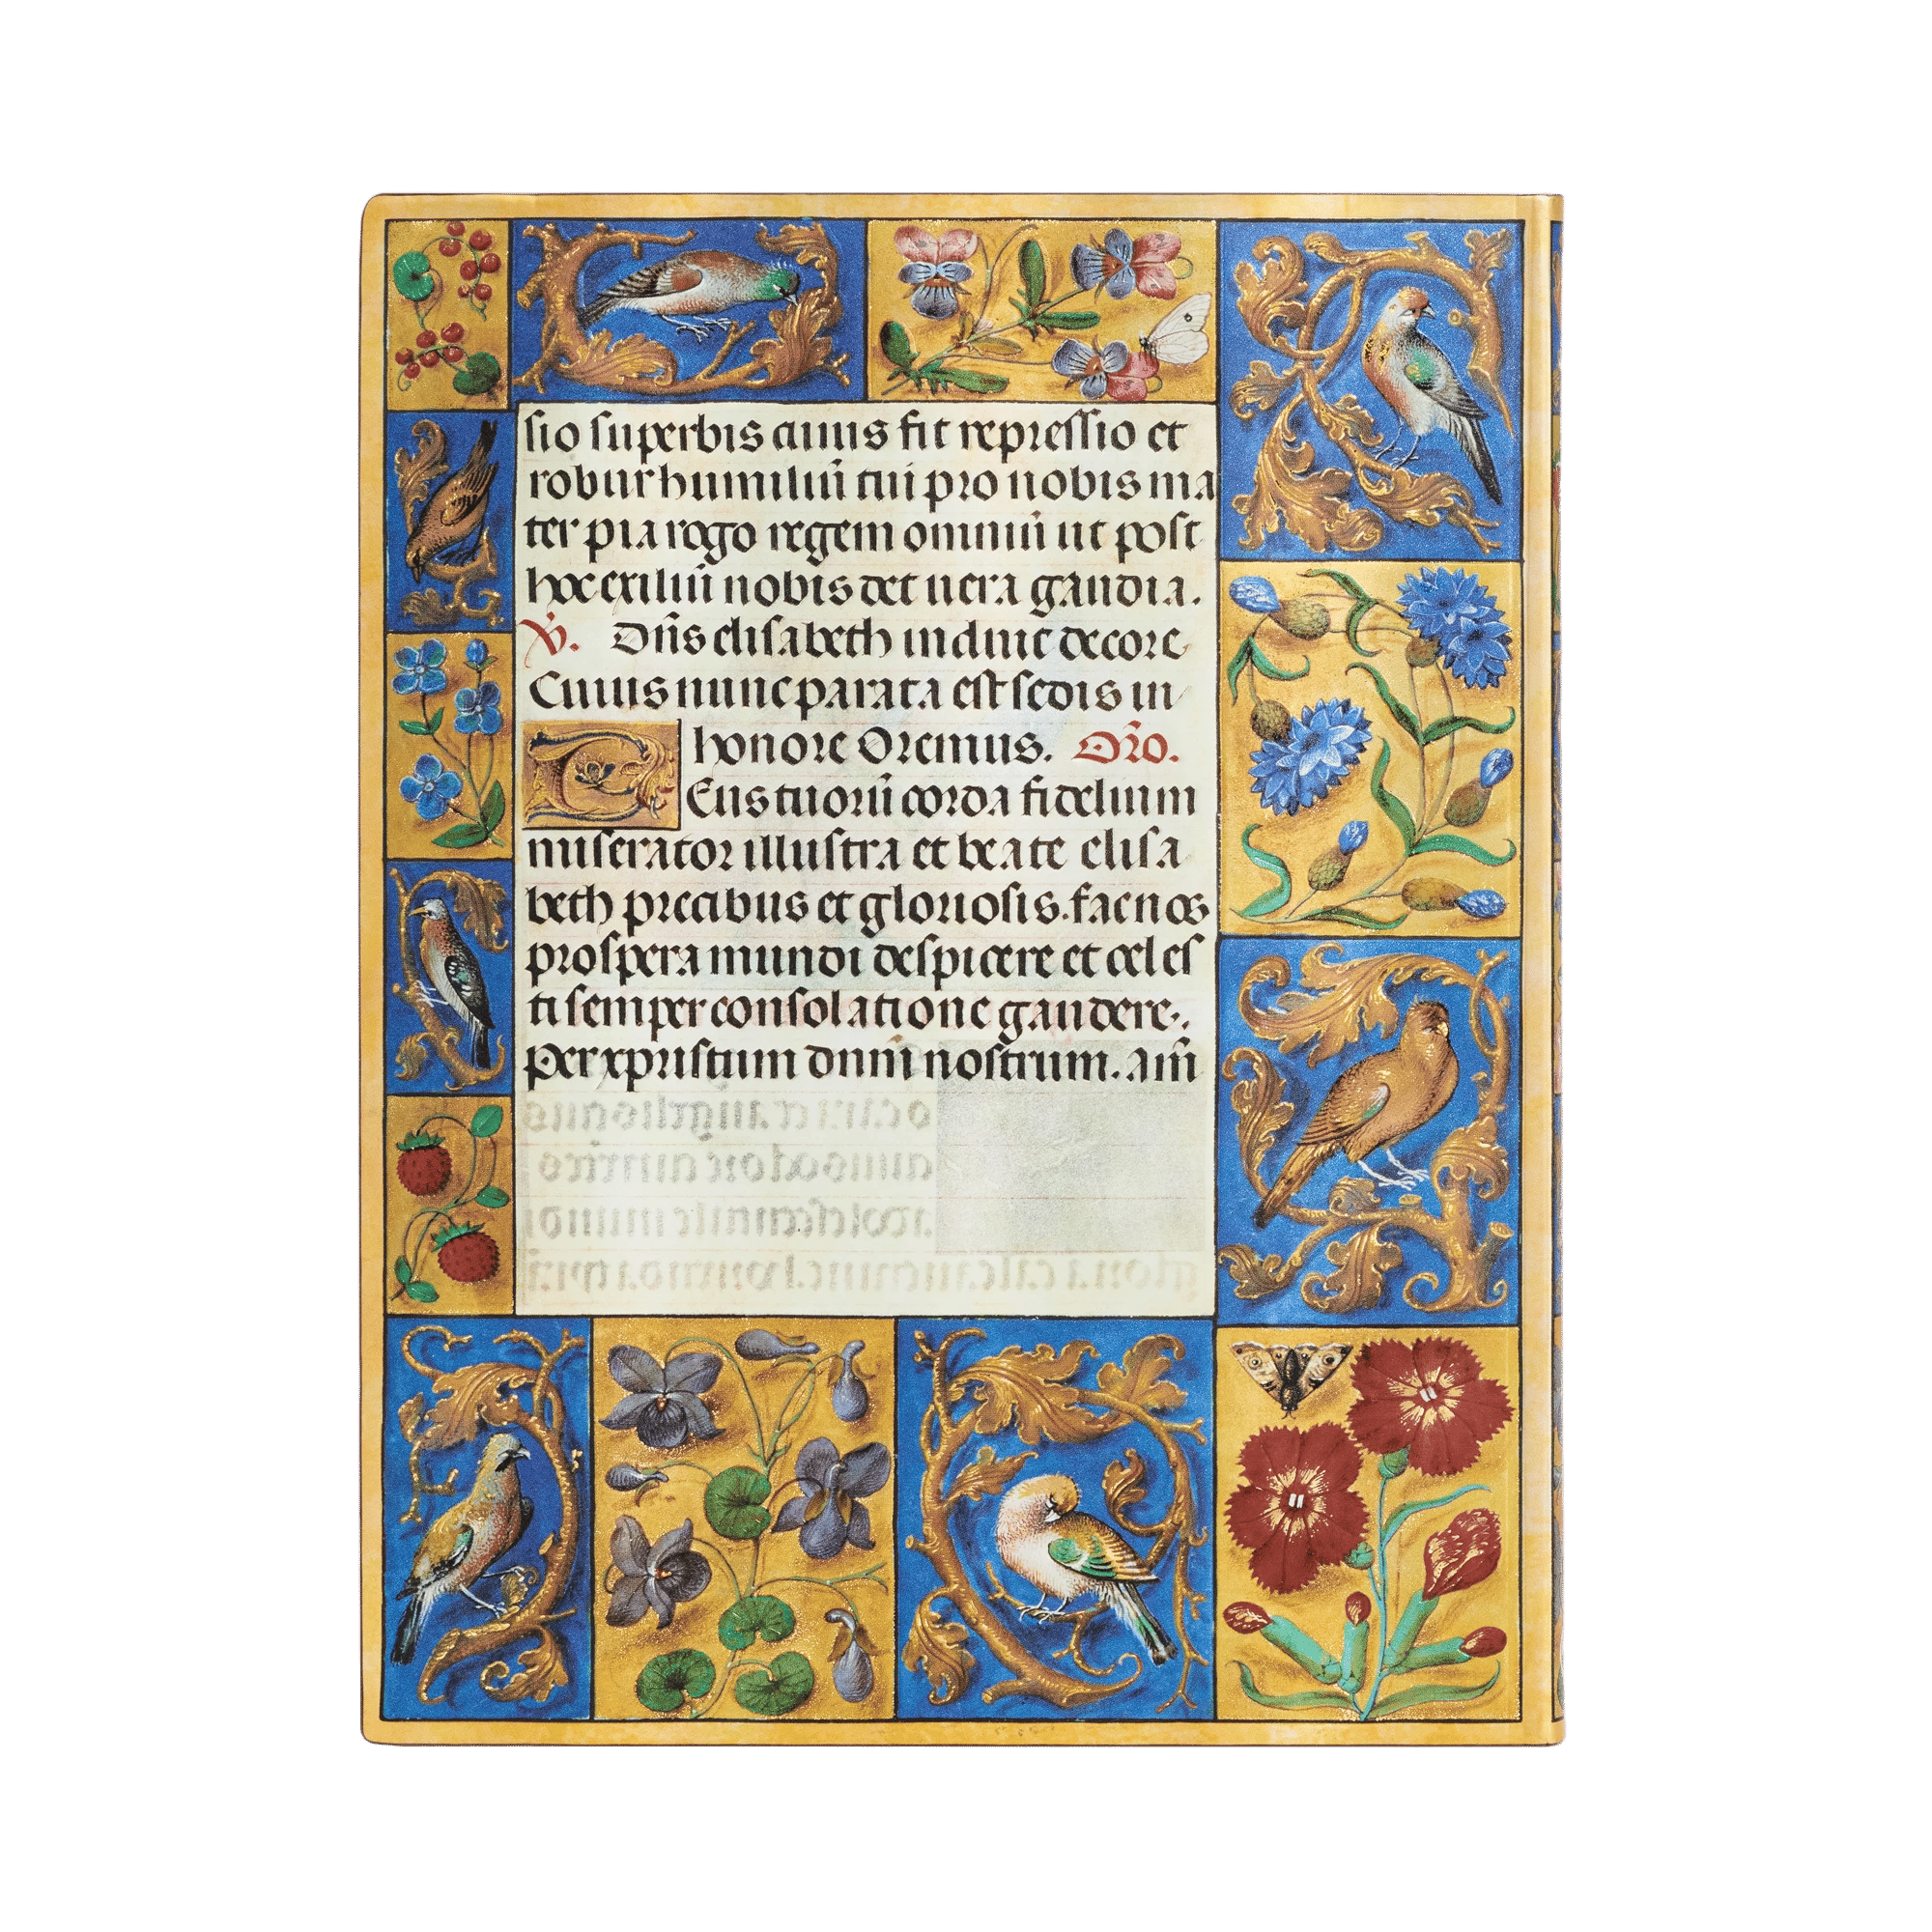 sio superbis cuius fit repressio et
robur humiliū cui pro nobis ma
ter pia rogo regem omniū ut post
hoc exiliū nobis det uera gaudia.
V̄. Dn̄s elisabeth induit decore
Cuius nunc parata est sedis in
honore Oremus. Or̄o.
Deus tuorū corda fidelium
miserator illustra et beate elisa
beth precibus et gloriosis. fac nos
prospera mundi despicere et celes
ti semper consolatione gaudere.
Per xpristum dnm̄ nostrum. am̄